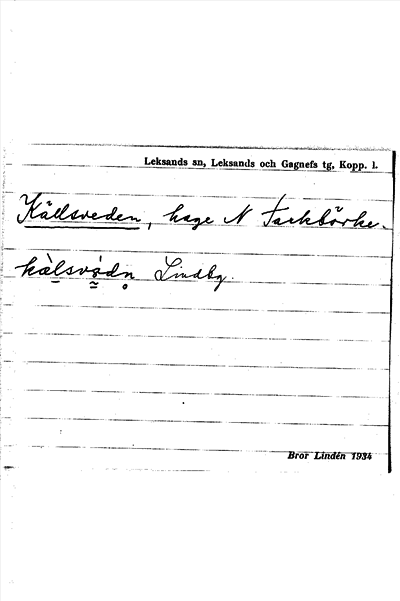 Leksands sn, Leksands och Gagnefs tg, Kopp. l.
Källsveden, hage N Tackbörke.
kàlsvǿdn Lindby.
Bror Lindén 1934